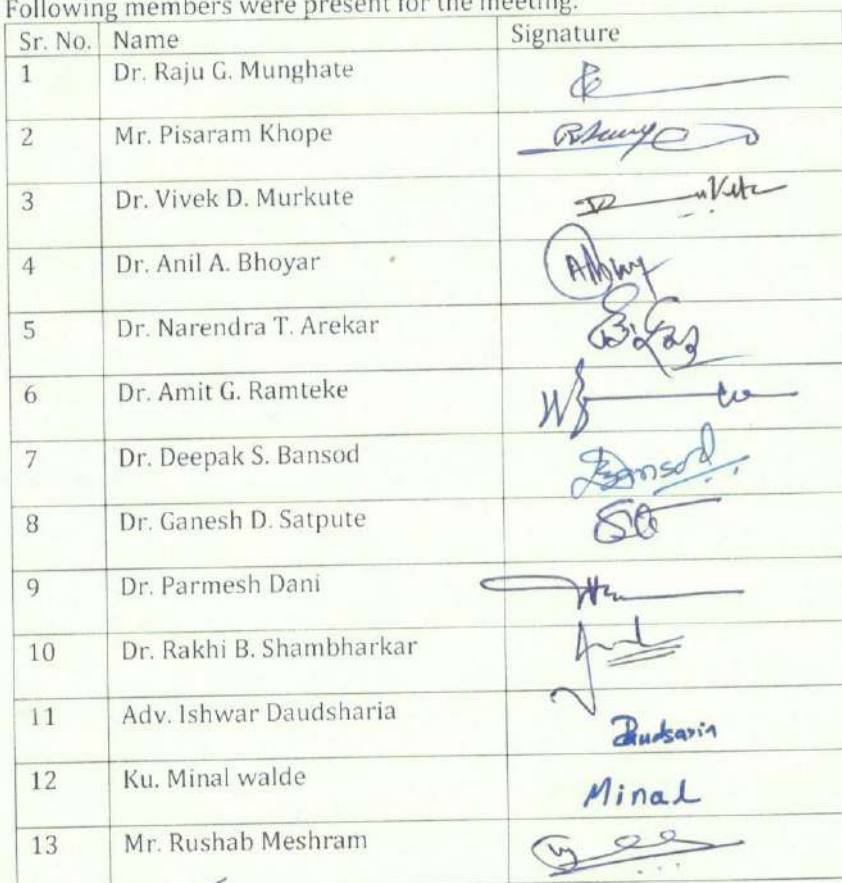 Following members were present for the meeting.
Sr. No. Name Signature
1 Dr. Raju G. Munghate
2 Mr. Pisaram Khope
3 Dr. Vivek D. Murkute
4 Dr. Anil A. Bhoyar
5 Dr. Narendra T. Arekar
6 Dr. Amit G. Ramteke
7 Dr. Deepak S. Bansod Bansod
8 Dr. Ganesh D. Satpute
9 Dr. Parmesh Dani
10 Dr. Rakhi B. Shambharkar
11 Adv. Ishwar Daudsharia Daudsaria
12 Ku. Minal walde Minal
13 Mr. Rushab Meshram